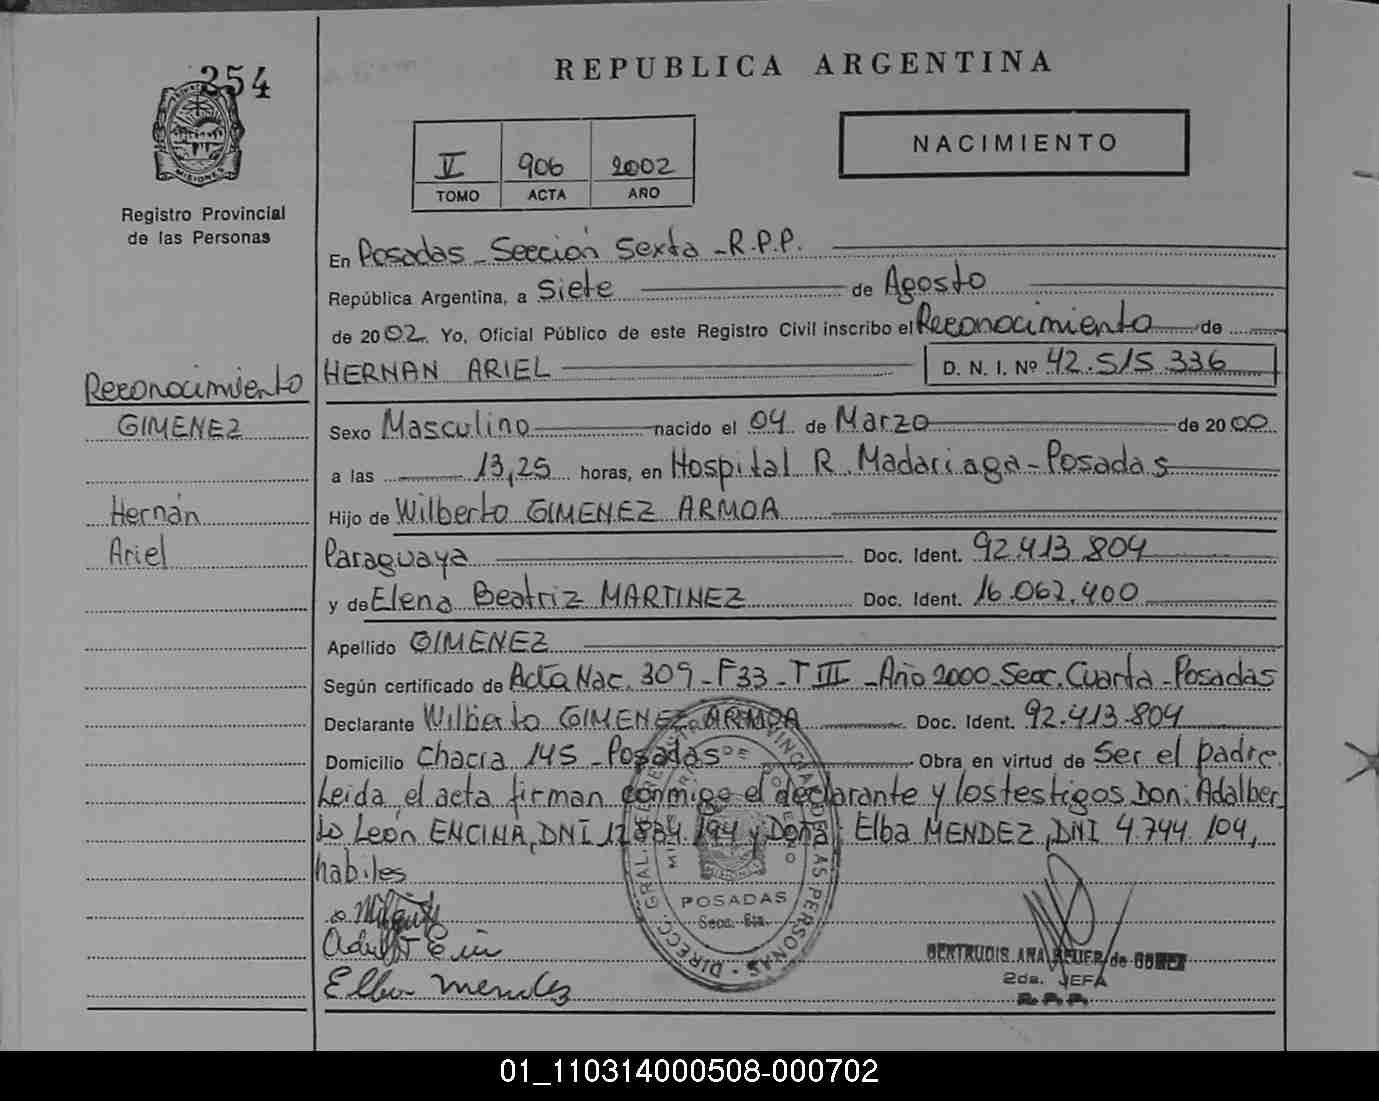 254
REPUBLICA ARGENTINA
MISIONES
Registro Provincial
de las Personas
V 906 2002
TOMO ACTA AÑO
NACIMIENTO
En Posadas - Sección Sexta - R.P.P.
República Argentina, a Siete de Agosto
de 2002. Yo, Oficial Público de este Registro Civil inscribo el Reconocimiento de
HERNAN ARIEL D. N. I. Nº 42.515.336
Reconocimiento
GIMENEZ
Hernán
Ariel
Sexo Masculino nacido el 04 de Marzo de 2000
a las 13,25 horas, en Hospital R. Madariaga - Posadas
Hijo de Wilberto GIMENEZ ARMOA
Paraguaya Doc. Ident. 92.413.804
y de Elena Beatriz MARTINEZ Doc. Ident. 16.062.400
Apellido GIMENEZ
Según certificado de Acta Nac. 309 - F33 - T III - Año 2000 - Secc. Cuarta - Posadas
Declarante Wilberto GIMENEZ ARMOA Doc. Ident. 92.413.804
Domicilio Chacra 145 - Posadas Obra en virtud de Ser el padre.
Leida el acta firman conmigo el declarante y los testigos Don: Adalber
to León ENCINA, DNI y Doña: Elba MENDEZ, DNI 4.744.104,
habiles
POSADAS
Secc. 6ta.
Elba Mendez
GERTRUDIS ANA de GOMEZ
2da. JEFA
R.P.P.
01_110314000508-000702